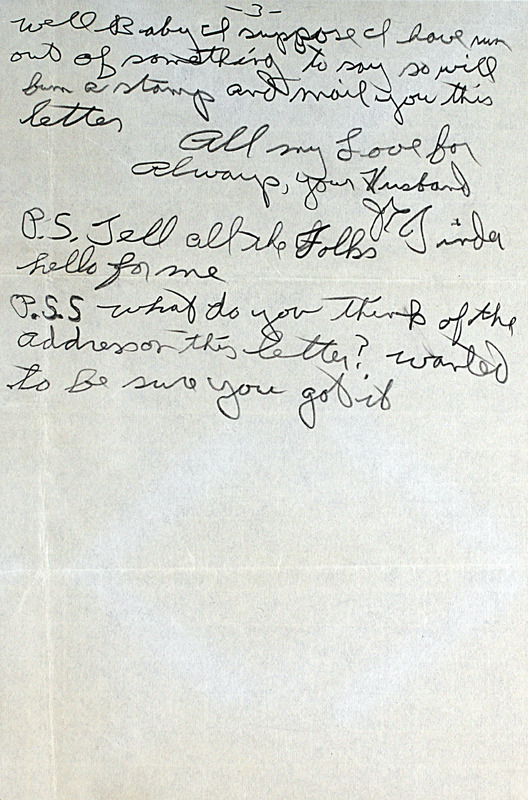 -3-
Well Baby I suppose I have run
out of something to say so will
bum a stamp and mail you this
letter
All my Love for
Always, your Husband
P.S. Tell all the Folks
hello for me
P.S.S what do you think of the
address on this letter? wanted
to be sure you got it